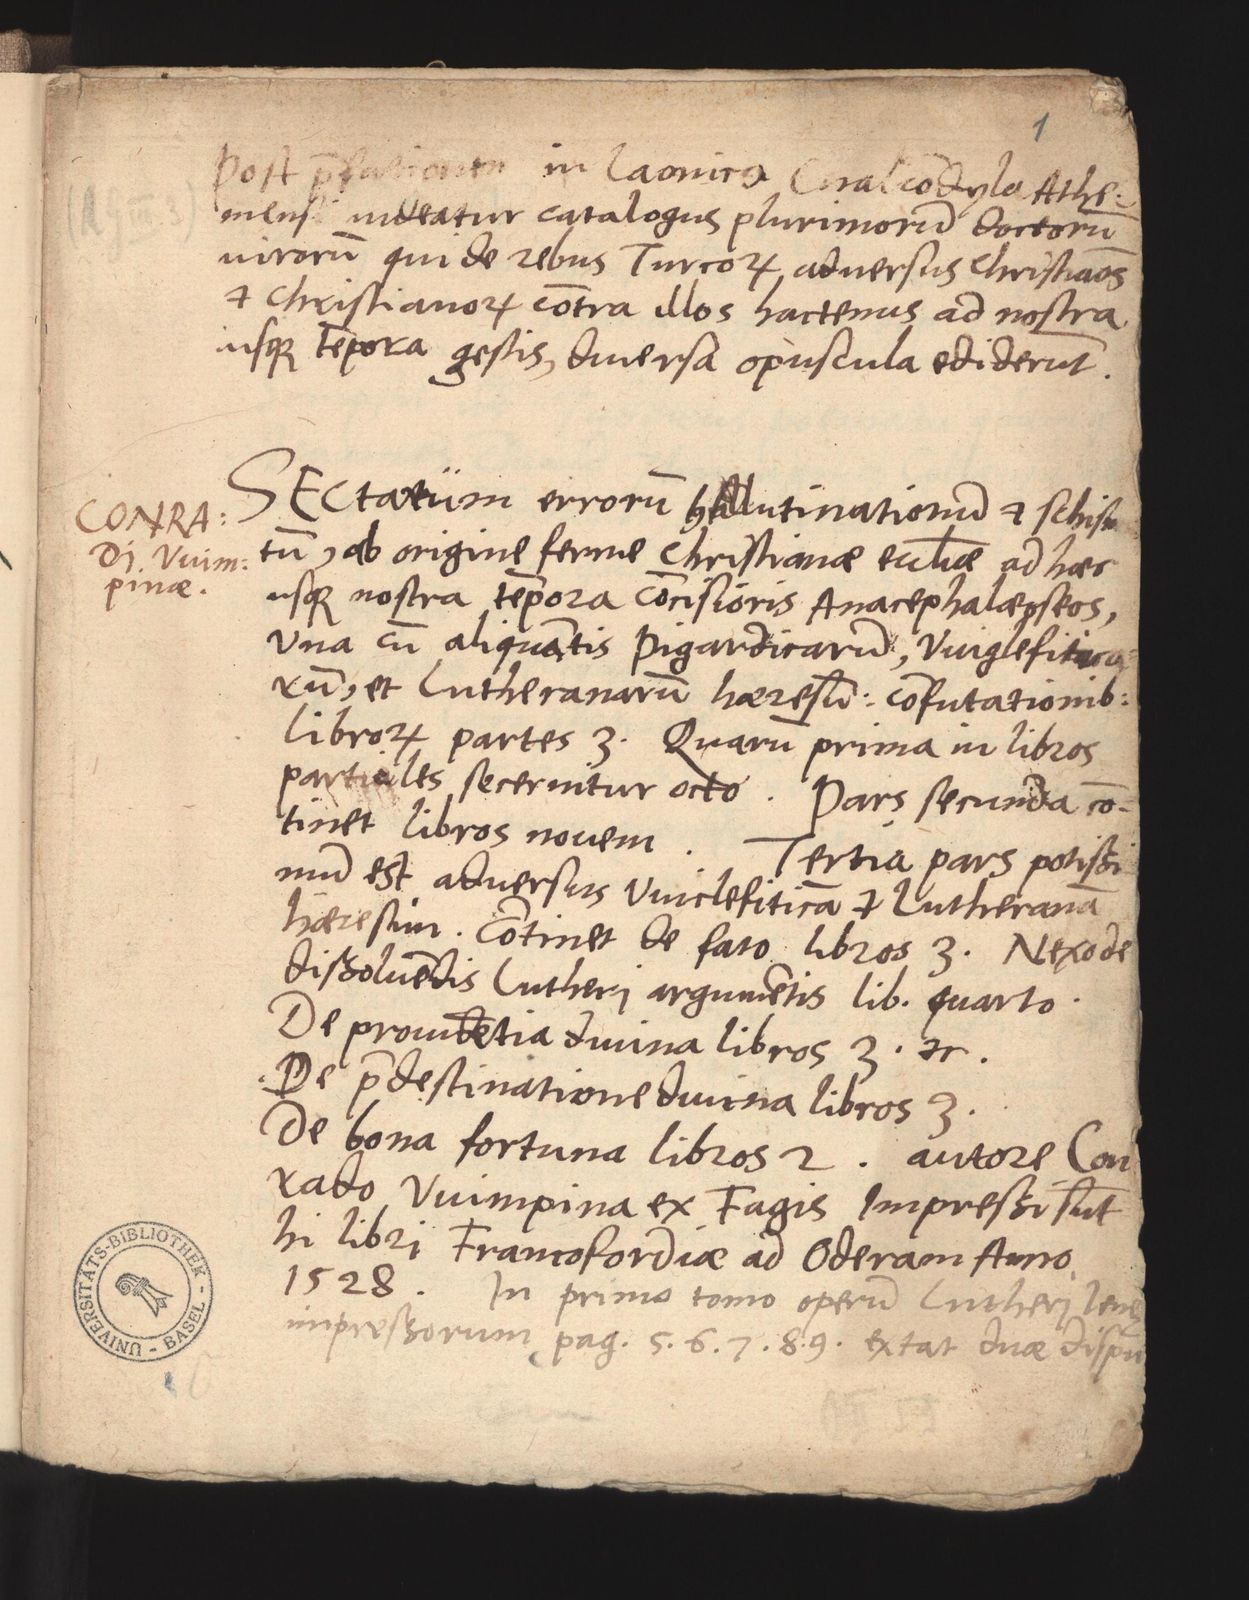 1
Post p̄fationem in Laonico Chalcōdyla Athe:
niensi uideatur catalogus plurimorū doctorū
uirorū qui de rebus Turcoꝝ aduersus Christiaōs
⁊ Christianoꝝ cōtra illos hactenus ad nostra
usqꝫ tēpora gestis, diuersa opuscula ediderūt.
CONRA:
Dj Vuim:
pinæ.
SECtarum errorū hallutinationū ⁊ schism
tū, ab origine ferme Christianæ eccl̄iæ ad hæc
usqꝫ nostra tēpora cōcisioris Anacephalæoseos,
Vna cū aliquātis Pigardicarū, Vuiglefitica
rū, et Lutheranarū hæresū: cōfutationib:
libroꝝ partes 3. Quarū prima in libros
partiales secernitur octo. Pars secunda cō-
tinet libros nouem. Tertia pars potissi
mū est aduersus Vuiclefiticā ⁊ Lutheranā
hæresim. Cōtinet de fato libros 3. Nexo de
dissoluēdis Lutherj argumētis lib. quarto.
De prouidētia diuina libros 3. ⁊c.
De p̄destinatione diuina libros 3.
De bona fortuna libros 2. autore Con
rado Vuimpina ex Fagis Impressi sūt
hi libri Francofordiæ ad Oderam Anno
1528. In primo tomo operū Lutherj Ienę
impressorum pag. 5. 6. 7. 8. 9. extāt duæ dispu
UNIVERSITÄTS-BIBLIOTHEK - BASEL -